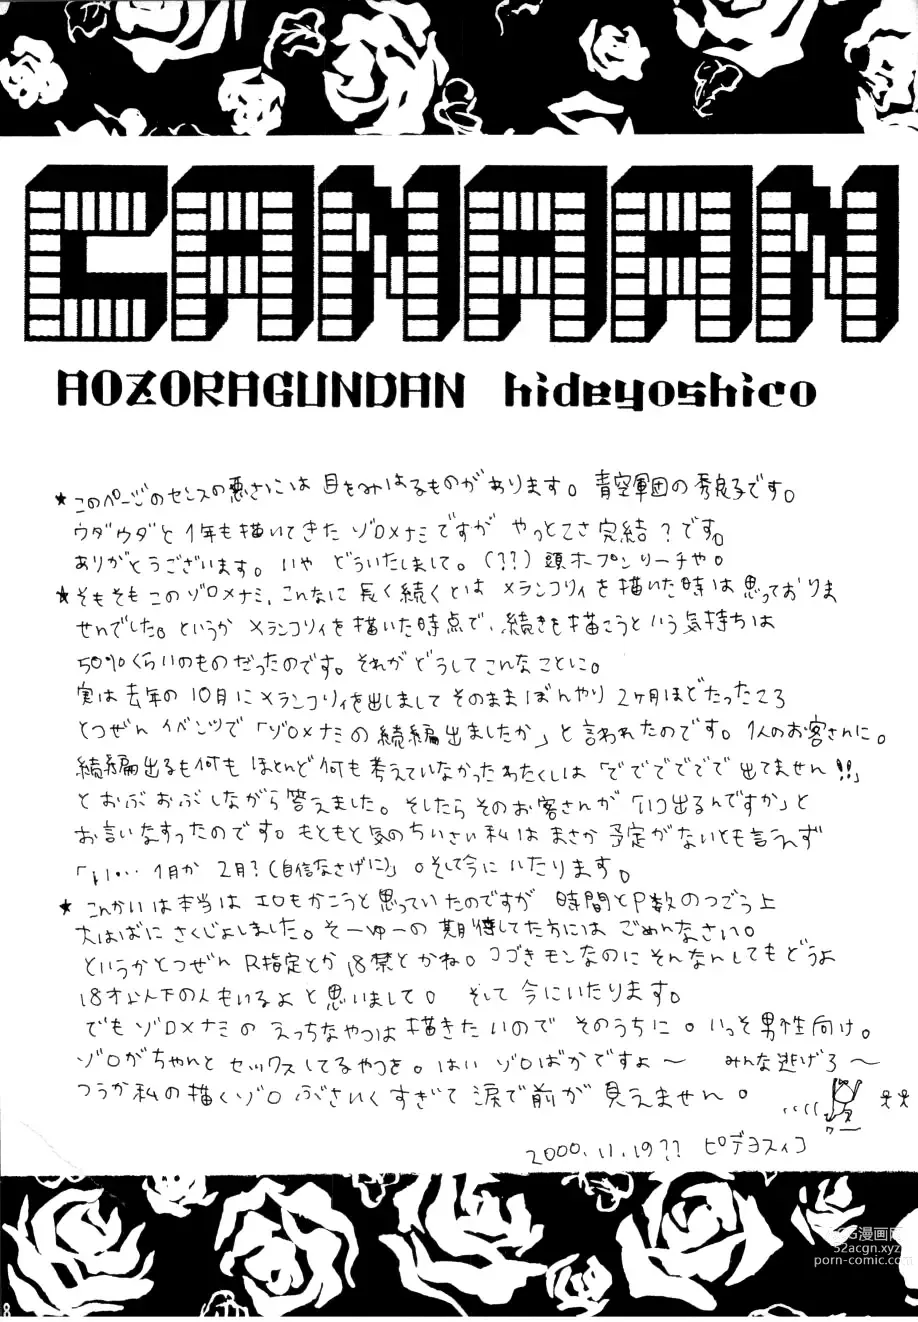 CANAAN
AOZORAGUNDAN hideyoshico
★このページのセンスの悪さには目をみはるものがあります。青空軍団の秀良子です。
ウダウダと1年も描いてきたゾロ×ナミですが やっとこさ完結？です。
ありがとうございます。いや どういたしまして。(??) 頭ホープンリーチや。
★そもそもこのゾロ×ナミ、こんなに長く続くとは メランコリィを描いた時は思っておりま
せんでした。というかメランコリィを描いた時点で、続きを描こうという気持ちは
50%くらいのものだったのです。それがどうしてこんなことに。
実は去年の10月にメランコリィを出しまして そのままぼんやり2ヶ月ほどたったころ
とつぜんイベンツで「ゾロ×ナミの続編出ましたか」と言われたのです。1人のお客さんに。
続編出るも何も ほとんど何も考えていなかったわたくしは「でででででで出てません!!」
とおぶおぶしながら答えました。そしたらそのお客さんが「いつ出るんですか」と
お言いなすったのです。もともと気のちいさい私はまさか予定がないとも言えず
「い…1月か 2月？(自信なさげに)」。そして今にいたります。
★こんかいは本当は エロもかこうと思っていたのですが 時間とP数のつごう上
大はばに さくじょしました。そーゆーの期待してた方にはごめんなさい。
というかとつぜんR指定とか18禁とかね。コゴキモンなのに そんなんしてもどうよ
18才以下の人もいるよと思いまして。 そして今にいたります。
でもゾロ×ナミの えっちなやつは描きたいので そのうちに。いっそ男性向け。
ゾロがちゃんと セックスしてるやつを。はい ゾロばかですよ〜 みんな逃げろ〜
つうか私の描くゾロ ぶさいくすぎて 涙で前が 見えません。
ワー
2000.11.19?? ピデヨスィコ
8
漫画网
52acgn.com
porn-comic.com